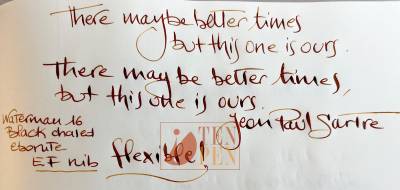 There may be better times
but this one is ours.
There may be better times,
but this one is ours.
Jean Paul Sartre
Waterman 16
Black chaled
ebonite
EF nib flexible!
TEN
PEN